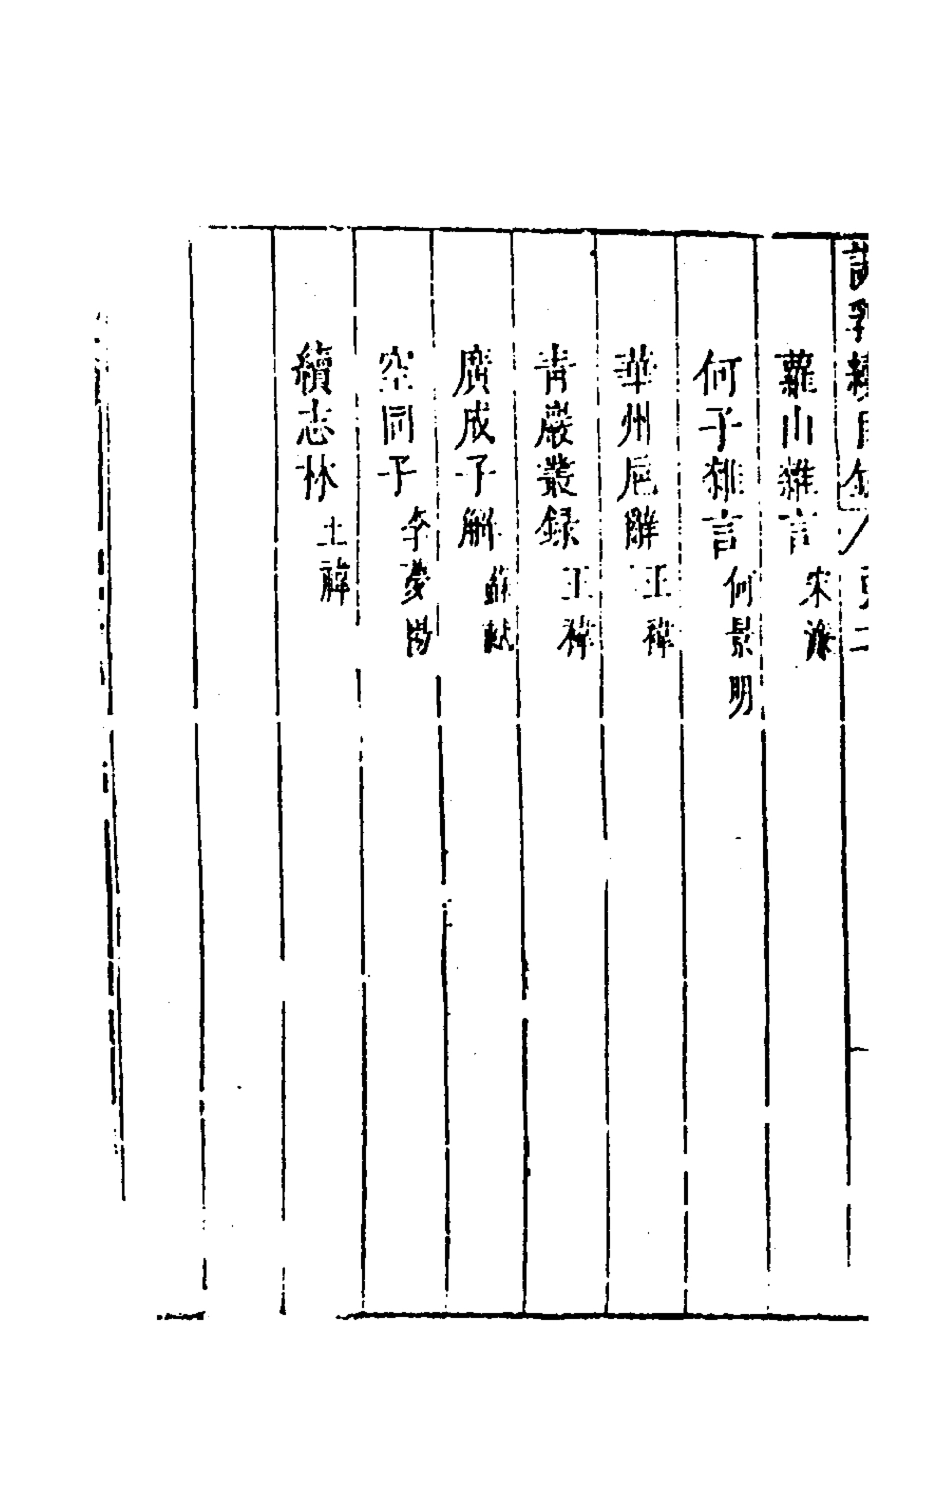 說郛續目錄 弓二
蘿山雜言 宋濂
何子雜言 何景明
華川卮辭 王褘
青巖叢録 王褘
廣成子解 蘇軾
空同子 李夢陽
續志林 王褘